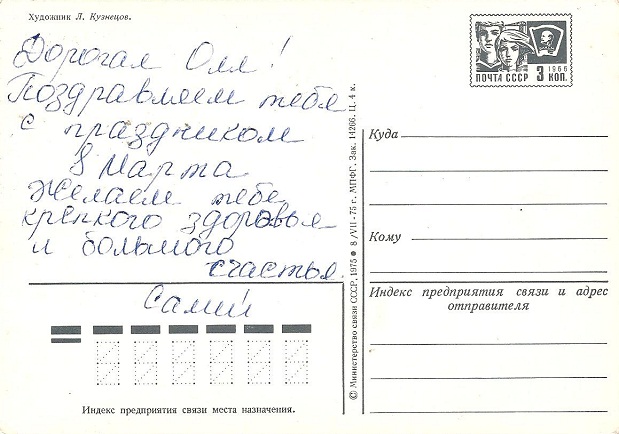 Художник Л. Кузнецов.
Дорогая Оля!
Поздравляем тебя
с праздником
8 Марта
Желаем тебе
крепкого здоровья
и большого
счастья.
Сами
Индекс предприятия связи места назначения.
© Министерство связи СССР, 1975 ● 8/VII-75 г. МПФГ. Зак. 14206. Ц. 4 к.
1966
ПОЧТА СССР 3 КОП.
Куда
Кому
Индекс предприятия связи и адрес
отправителя